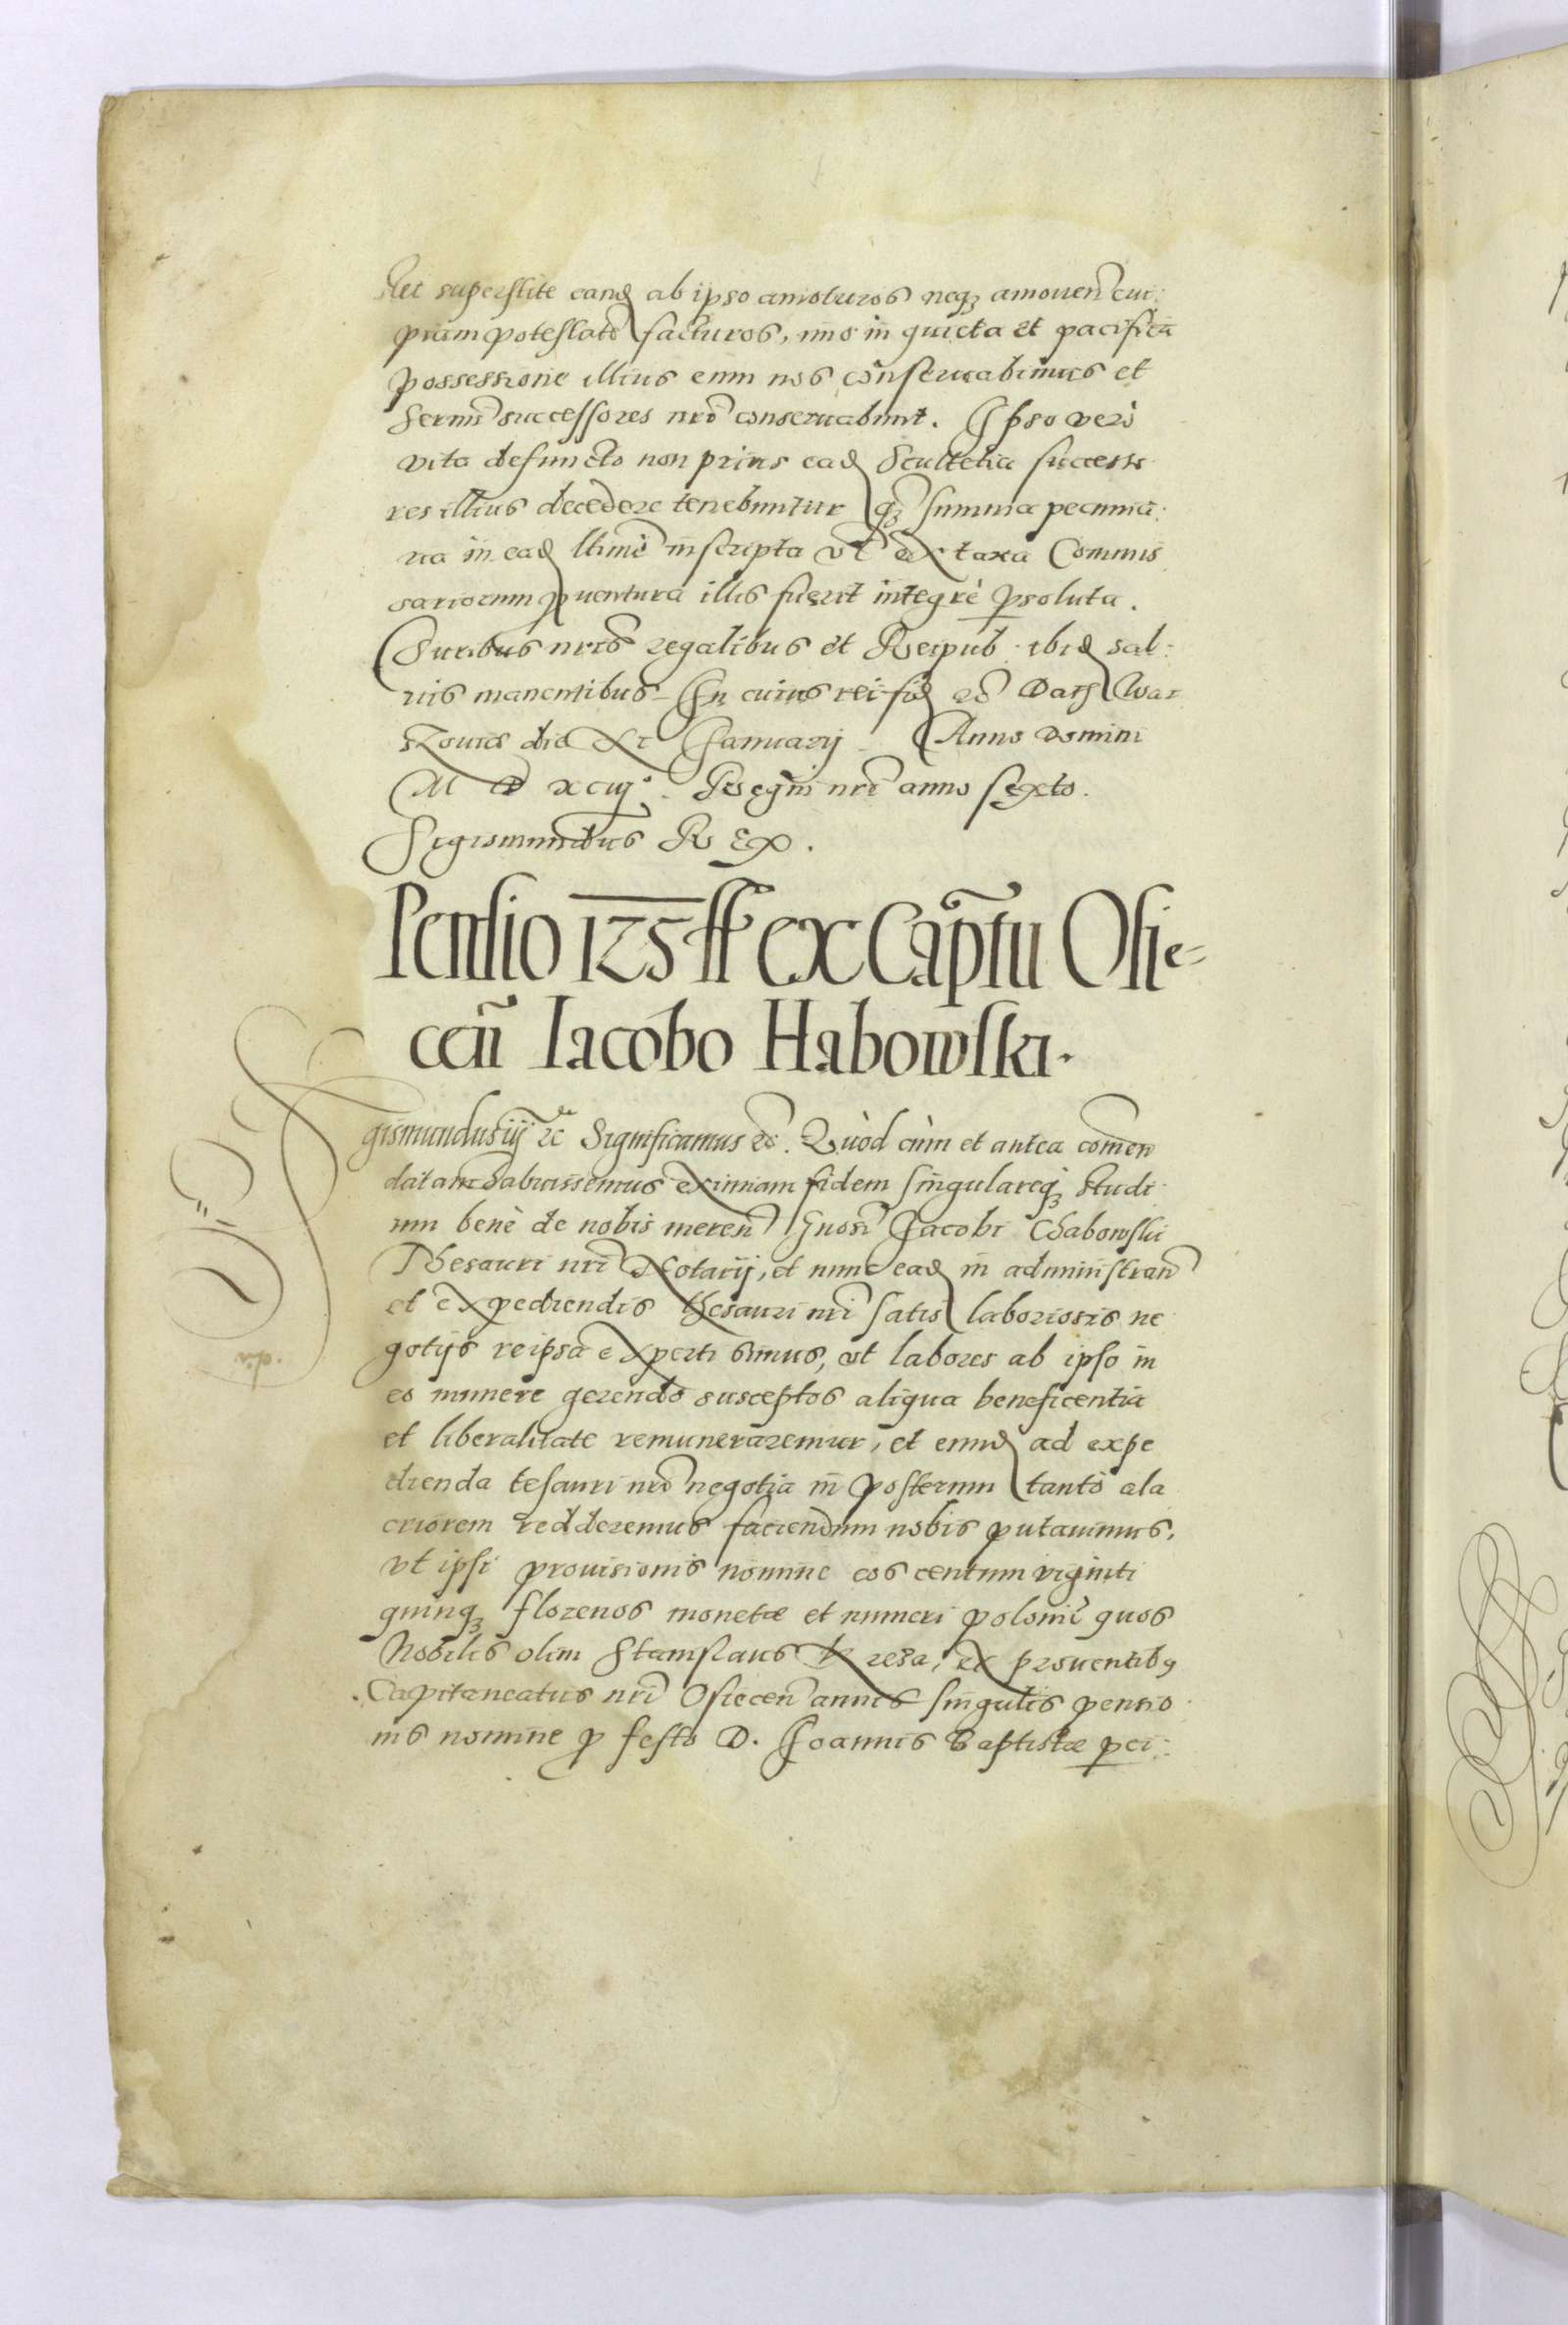 superstite eand ab ipso amoturos neqꝫ amouen̄ cui:
piam potestatē facturos, imo in quieta et pacifica
possessione illius eum nos conseruabimus et
Sermi successores nrī conseruabunt. Ipso verò
vita defuncto non prius ead Scultetia successo
res illius decedere tenebuntur qꝫ summa pecunia:
ria in ead ltimè inscripta vel ex taxa Commis
sariorum ꝓuentura illis fuerit integrè ꝑsoluta.
Iuribus nrīs regalibus et Reipub. ibid sal:
uis manentibus. In cuius rei fid etc̄ Dat War
szouiæ die XI Ianuarij Anno Domini
M D XCIIJ°. Regni nrī anno sexto.
Sigismundus Rex.
Pensio 125 ff ex Cap̄tu Osie-
ceñ Iacobo Habowski.
Sigismundus iij etc Significamus etc̄. Quòd cùm et antea com̄en
datam habuissemus eximiam fidem singulareqꝫ studi
um benè de nobis meren̄ Gnosi Iacobi Chabowski
Thesauri nrī Notarij, et nunc ead in administran̄
et expediendis thesauri nrī satis laboriosis ne
gotijs reipsa experti simus, vt labores ab ipso in
eo munere gerendo susceptos aliqua beneficentia
et liberalitate remuneraremur, et eund ad expe
dienda tesauri nrī negotia in posterum tantò ala
criorem redderemus faciendum nobis putauimus,
vt ipsi prouisionis nomine eos centum viginti
quinqꝫ florenos monetæ et numeri poloni quos
Nobilis olim Stanislaus ex prouentibꝯ
Capitaneatus nrī Osiecen̄ annis singulis pensio
nis nomine ꝓ festo D. Ioannis Baptistæ ꝑci: